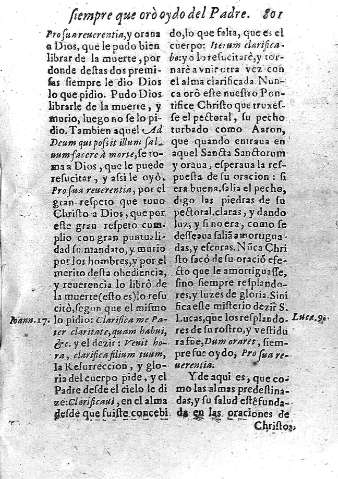 siempre que orò oydo del Padre. 801
Pro sua reuerentia, y orana
a Dios, que le pudo bien
librar de la muerte, por
donde destas dos premi-
sas siempre le dio Dios
lo que pidio. Pudo Dios
librarle de la muerte, y
murio, luego no se lo pi-
dio. Tambien aquel Ad
Deum qui possit illum sal-
uum facere à morte, se to-
ma a Dios, que le puede
resucitar, y assi le oyò.
Pro sua reuerentia, por el
gran respeto que tuuo
Christo a Dios, que por
este gran respeto cum-
plio con gran puntuali-
dad su mandato, y murio
por los hombres, y por el
merito desta obediencia,
y reuerencia lo librò de
la muerte (esto es) lo resu-
citò, segun que el mismo
Ioann. 17. lo pidio: Clarifica me Pa-
ter claritate, quam habui,
&c. y el dezir: Venit ho-
ra, clarifica filium tuum,
la Resurreccion, y glo-
ria del cuerpo pide, y el
Padre desde el cielo le di
ze: Clarificaui, en el alma
desdè que fuiste concebi
do, lo que falta, que es el
cuerpo: Iterum clarifica-
bo: y lo resucitarè, y tor-
narà a vnirotra vez con
el alma clarificada. Nun-
ca orò este nuestro Pon-
tifice Christo que truxes-
se el pectoral, su pecho
turbado como Aaron,
que quando entraua en
aquel Sancta Sanctorum
y oraua, esperaua la res-
puesta de su oracion: si
era buena, salia el pecho,
digo las piedras de su
pectoral, claras, y dando
luz, y si no era, como se
desseaua salian amortigua-
das, y escuras. Nũca Chri
sto sacò de su oracio efe
cto que le amortiguasse,
sino siempre resplando-
res, y luzes de gloria. Sini
fica este misterio dezir S.
Lucas, que los resplando- Luca. 9.
res de su rostro, y vestidu
ra fue, Dum oraret, siem-
pre fue oydo, Pro sua re-
uerentia.
Y de aqui es, que co-
mo las almas predestina-
das, y su salud està funda-
da en las oraciones de
Christo,